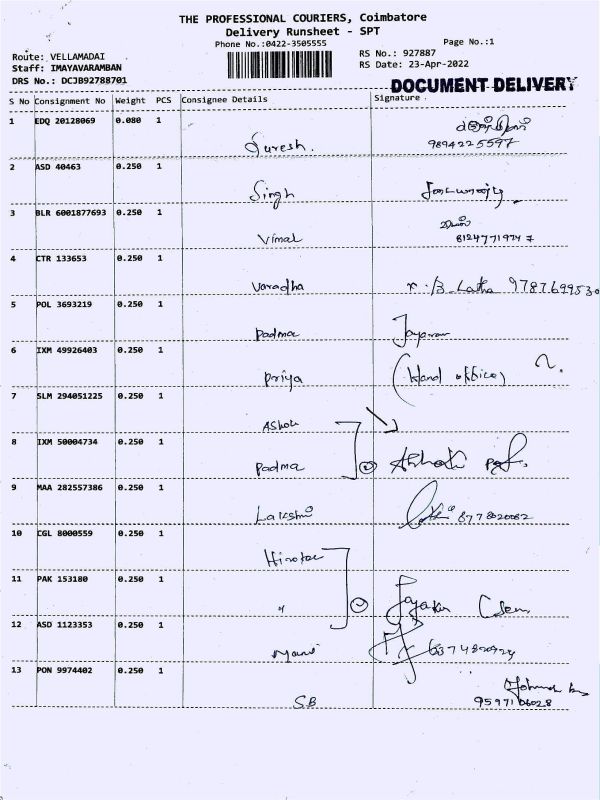 THE PROFESSIONAL COURIERS, Coimbatore
Delivery Runsheet - SPT
Phone No.:0422-3505555
Page No.:1
Route: VELLAMADAI
RS No.: 927887
Staff: IMAYAVARAMBAN
RS Date: 23-Apr-2022
DRS No.: DCJB92788701
DOCUMENT DELIVERY
S No Consignment No Weight PCS Consignee Details Signature
1 EDQ 20128069 0.080 1 Suresh. 9894225597
2 ASD 40463 0.250 1 Singh
3 BLR 6001877693 0.250 1 Vimal விமல்
8124771974 7
4 CTR 133653 0.250 1 Varadha B. Latha 9787699530
5 POL 3693219 0.250 1 Padma
6 IXM 49926403 0.250 1 Priya (Hand office)
7 SLM 294051225 0.250 1 Ashok
8 IXM 50004734 0.250 1 Padma 2 Ashok
9 MAA 282557386 0.250 1 Lakshmi
10 CGL 8000559 0.250 1
11 PAK 153180 0.250 1 "
12 ASD 1123353 0.250 1 Mani
13 PON 9974402 0.250 1 SB 9597106028